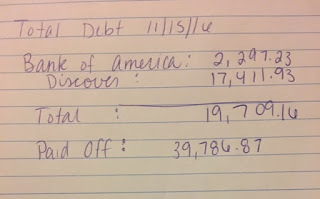 Total Debt 11/15/16
Bank of America: 2,297.23
Discover : 17,411.93
Total : 19,709.16
Paid Off : 39,786.87